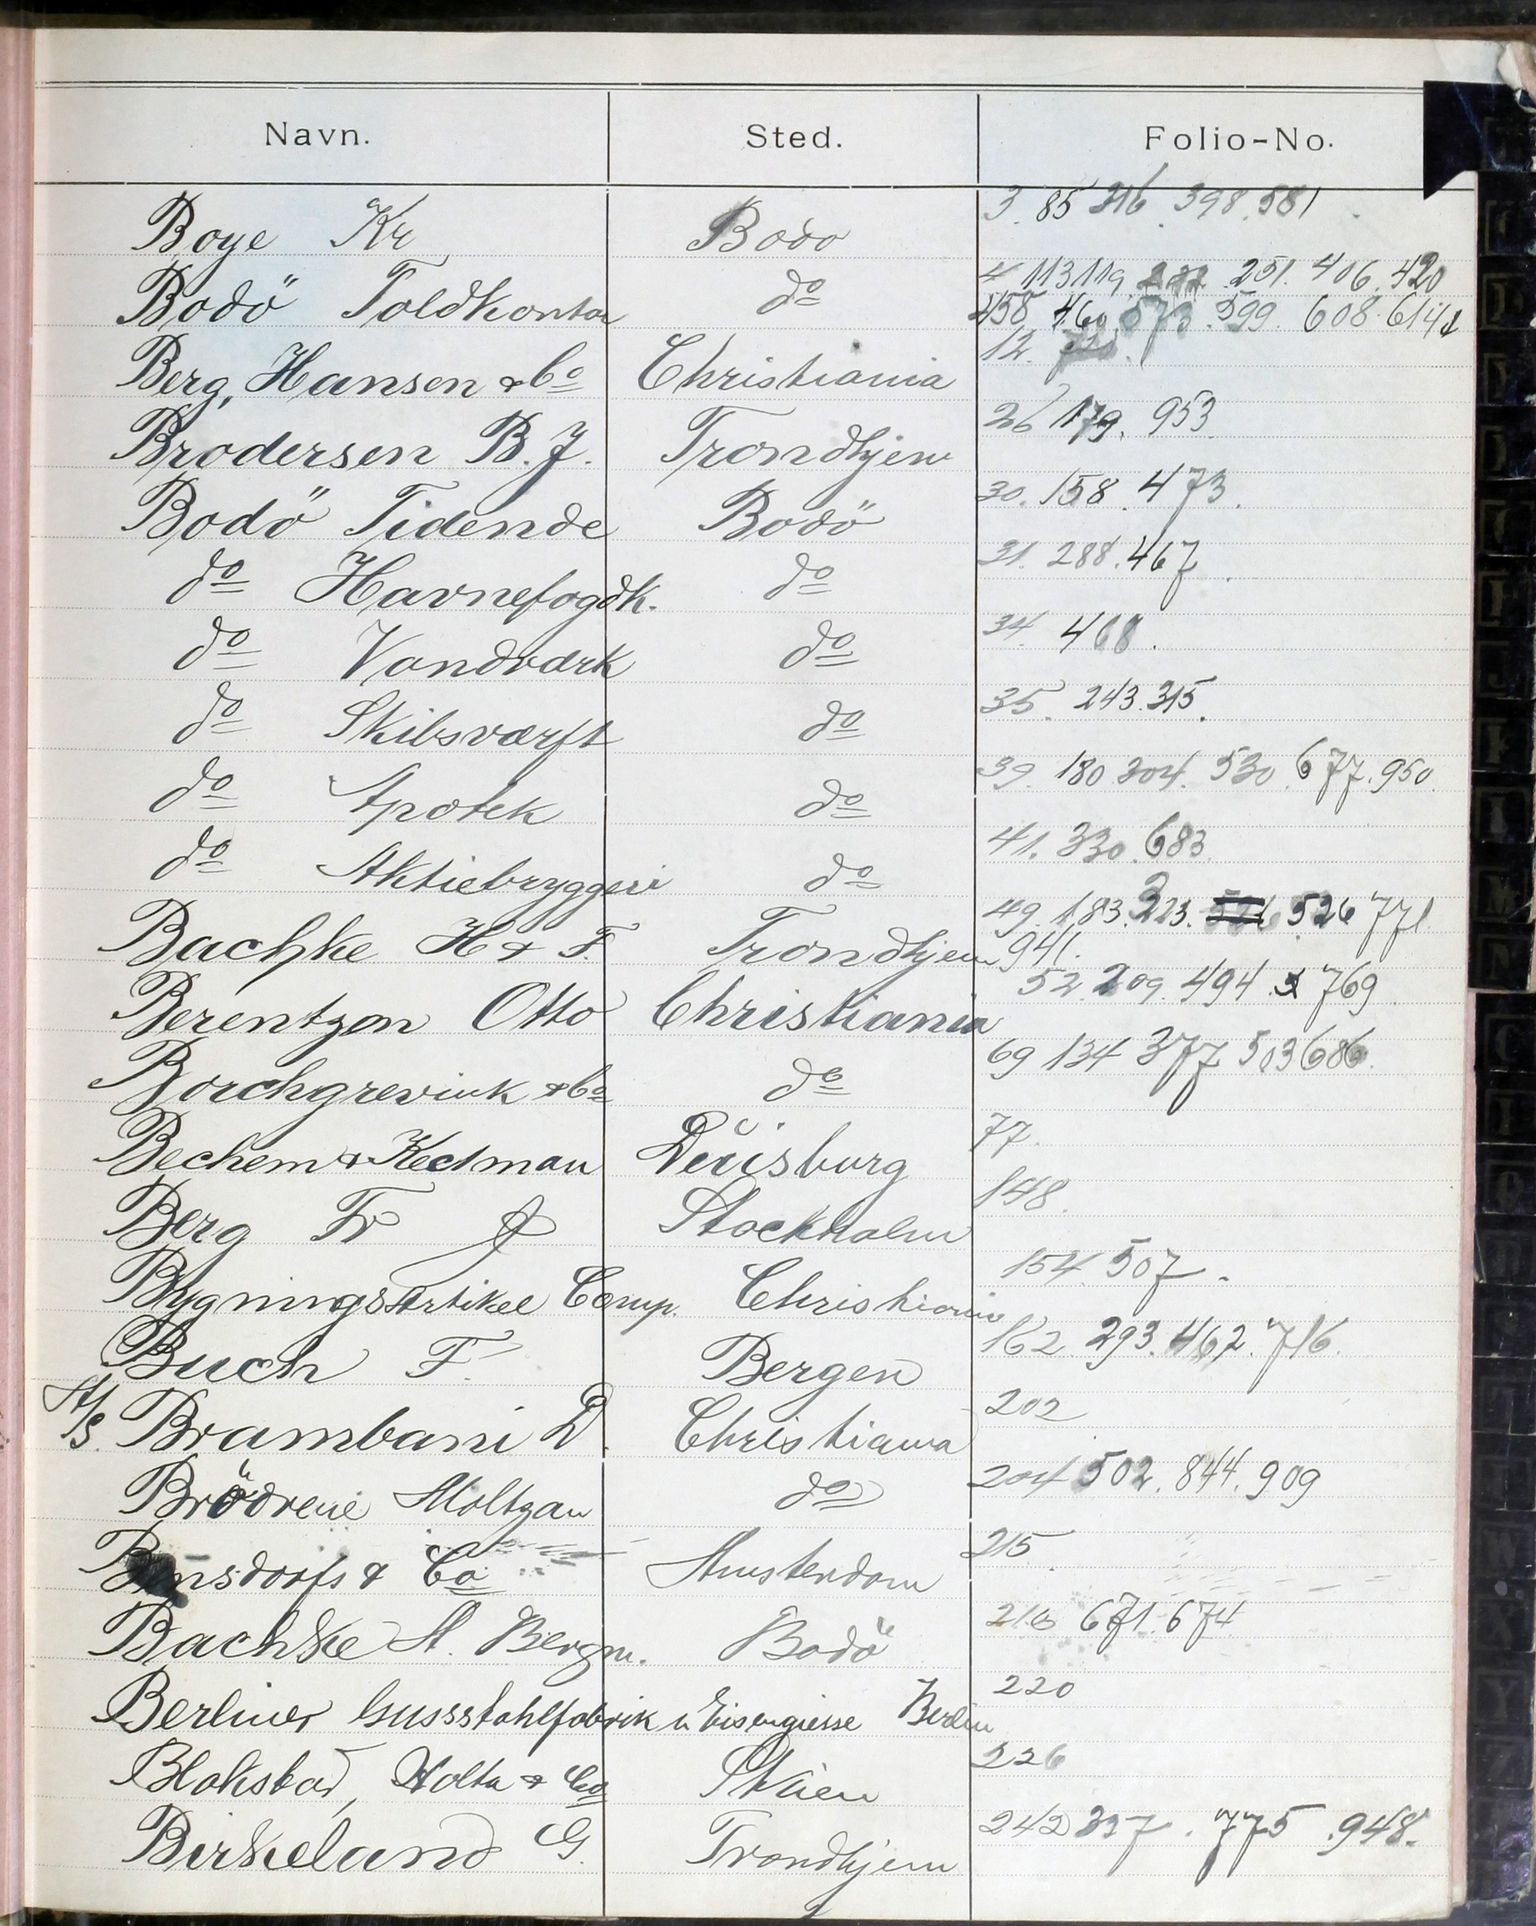 Navn. Sted. Folio-No.
Boye Kr Bodo 3. 85 316. 398. 581
Bodö Toldkontor do 4 113 119 251. 406. 420
458 460 573. 599. 608. 614
Berg, Hansen & Co Christiania 12.
Brodersen B. J. Trondhjem 26 179. 953
Bodö Tidende Bodö 30. 158. 473.
do Havnefogdk. do 31. 288. 467.
do Vandværk do 34. 468.
do Skibsværft do 35. 243. 315.
do Apotek do 39. 180 304. 530. 677. 950.
do Aktiebryggeri do 41. 330. 683.
Bachke H & F. Trondhjem 49. 183. 323. 526 771.
941.
Berentzen Otto Christiania 52. 209. 494. 769
Borchgrevink & Co do 69 134 377 503 686.
Bechem & Keetman Düisburg 77.
Berg Fr Stockholm 148.
BygningsArtikel Comp. Christiania 154. 507.
Buch F. Bergen 162. 293. 462. 716.
A/S. Brambani D. Christiania 202
Brödrene Moltzau do 204 502. 844. 909
& Co Amsterdam 215
Bachke A. Bergm. Bodö 216 671. 674
Berliner Gussstahlfabrik u Eisengiesse Berlin 220
Blakstad, Holta & Co Skien 226
Birkeland G. Trondhjem 242 337. 775. 948.